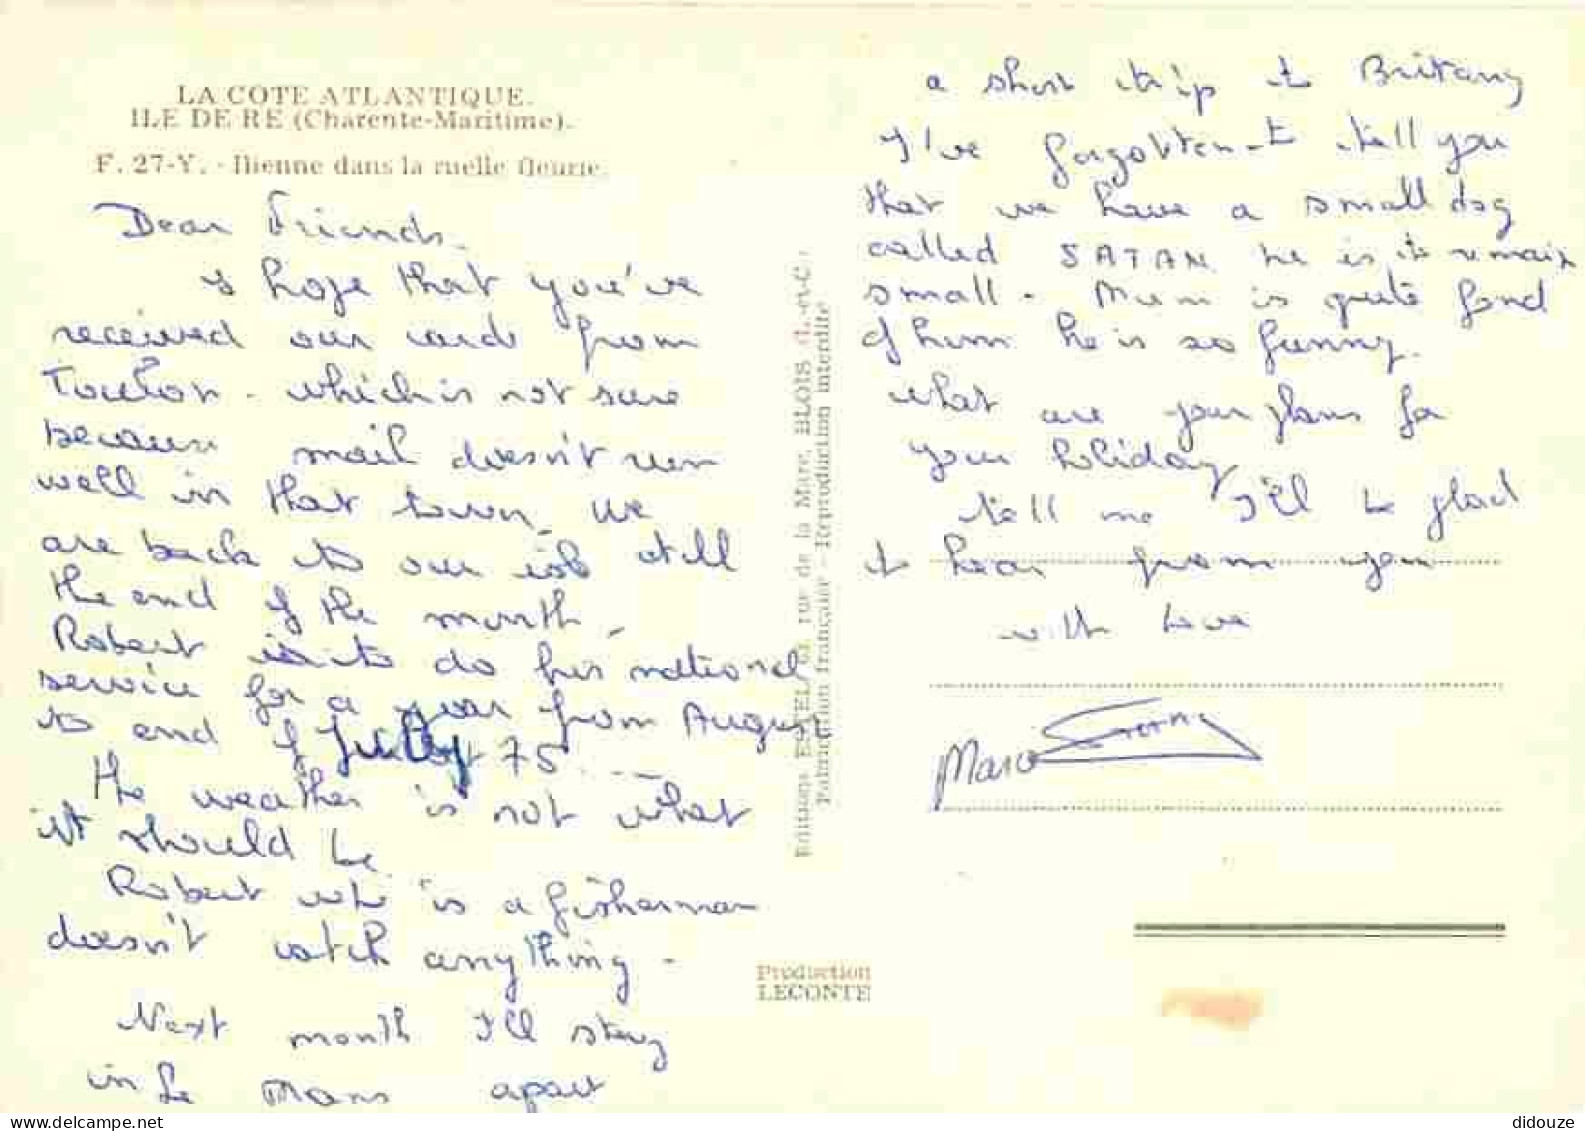 LA COTE ATLANTIQUE.
ILE DE RE (Charente-Maritime).
F. 27-Y. - Ilienne dans la ruelle fleurie.
Dear Friends.
I hope that you've
received our cards from
Toulon - which is not sure
because mail doesn't run
well in that town. We
are back to our job till
the end of the month.
Robert is to do his national
service for a year from August
to end of July 75
The weather is not what
it should be
Robert who is a fisherman
doesn't catch anything -
Next month I'll stay
in Le Mans apart
a short trip to Britany
I've forgotten to tell you
that we have a small dog
called SATAN he is to remain
small. Mum is quite fond
of him he is so funny.
what are your plans for
your holiday
tell me I'll be glad
to hear from you
with love
Marc
Editions ESTEL, 63, rue de la Mare, BLOIS (L.-et-C.)
Fabrication française - Reproduction interdite
Production
LECONTE
didouze